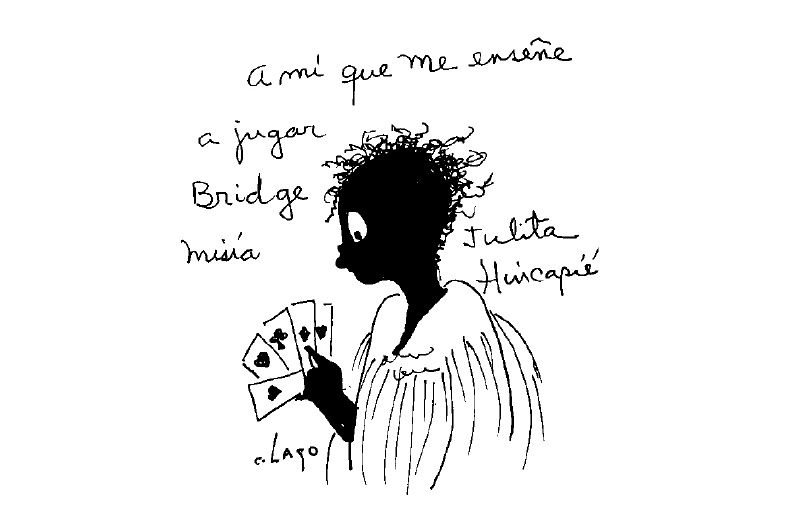 A mí que me enseñe
a jugar
Bridge
misiá
Julita
Hincapié
c. LAGO